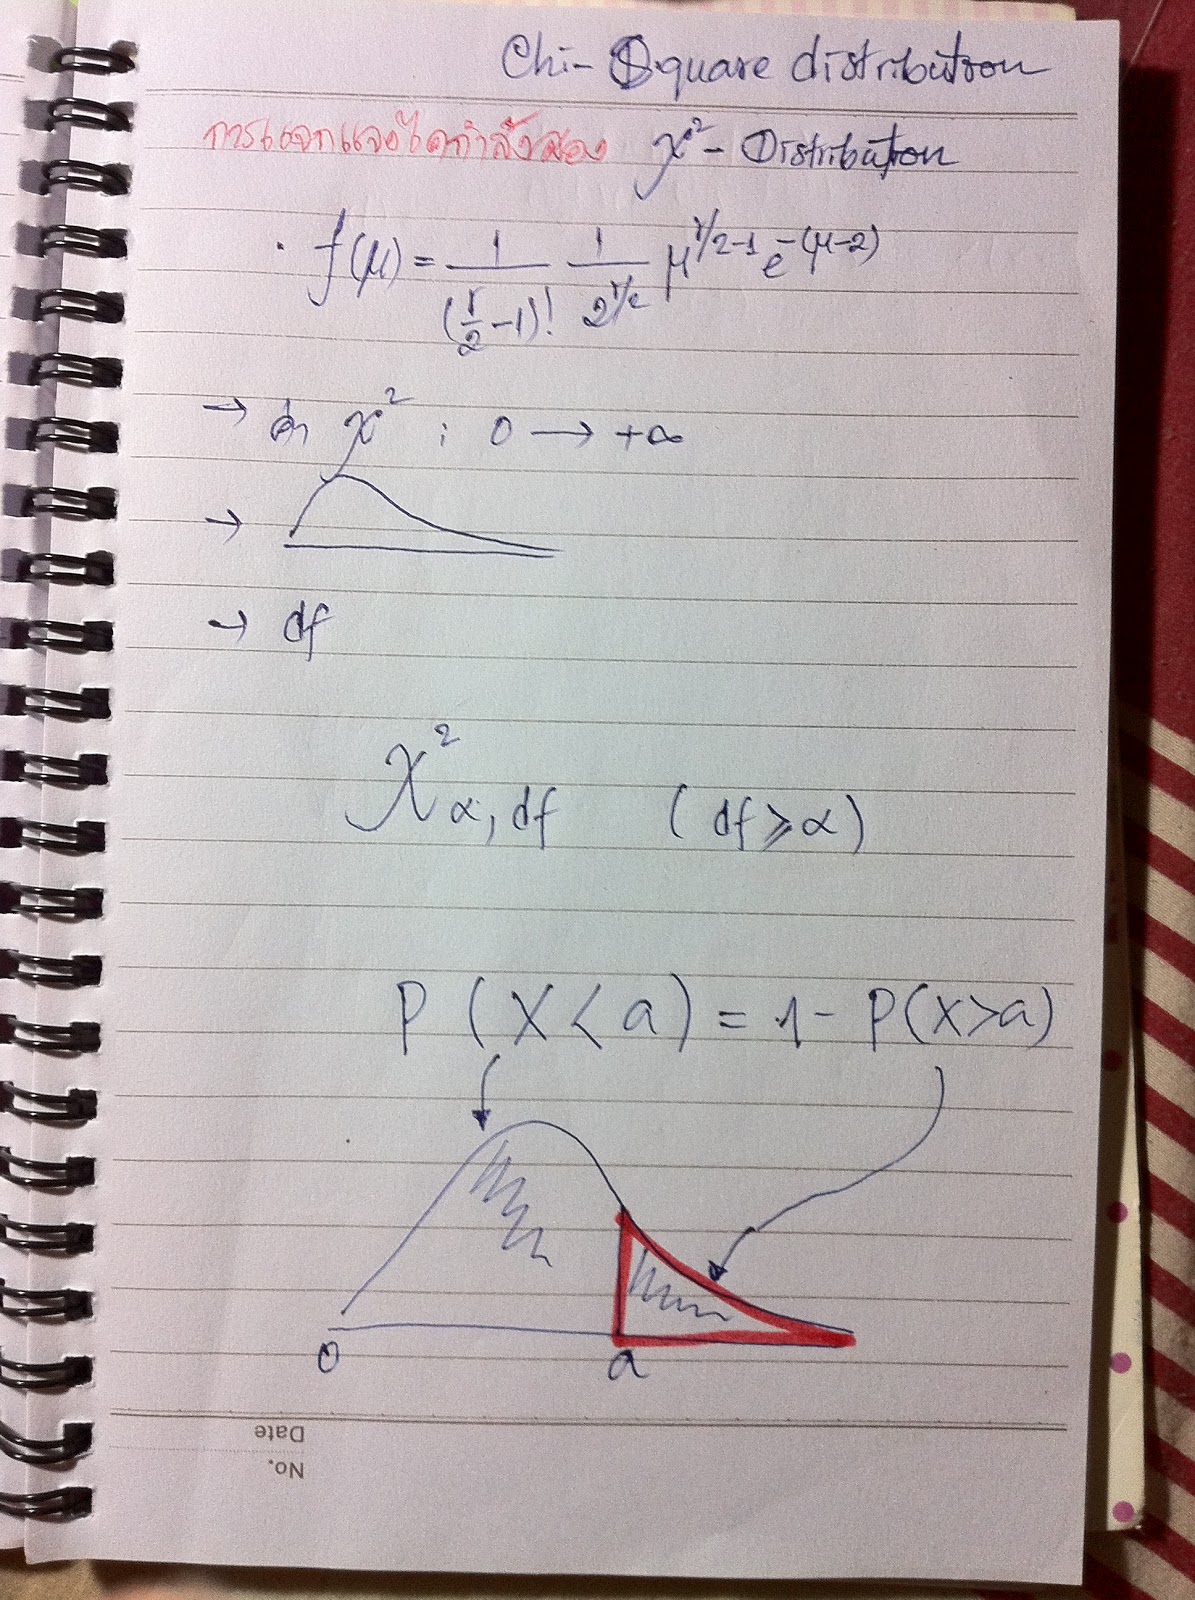 Chi-Square distribution
การแจกแจงไคกำลังสอง χ²-Distribution
· f(μ) = 1/(r/2-1)! 1/2^(r/2) μ^(r/2-1) e^-(μ-2)
→ ค่า χ² ; 0 → +∞
→
→ df
χ²α, df (df ⩾ α)
P(X < a) = 1 - P(X > a)
0 a
Date
No.